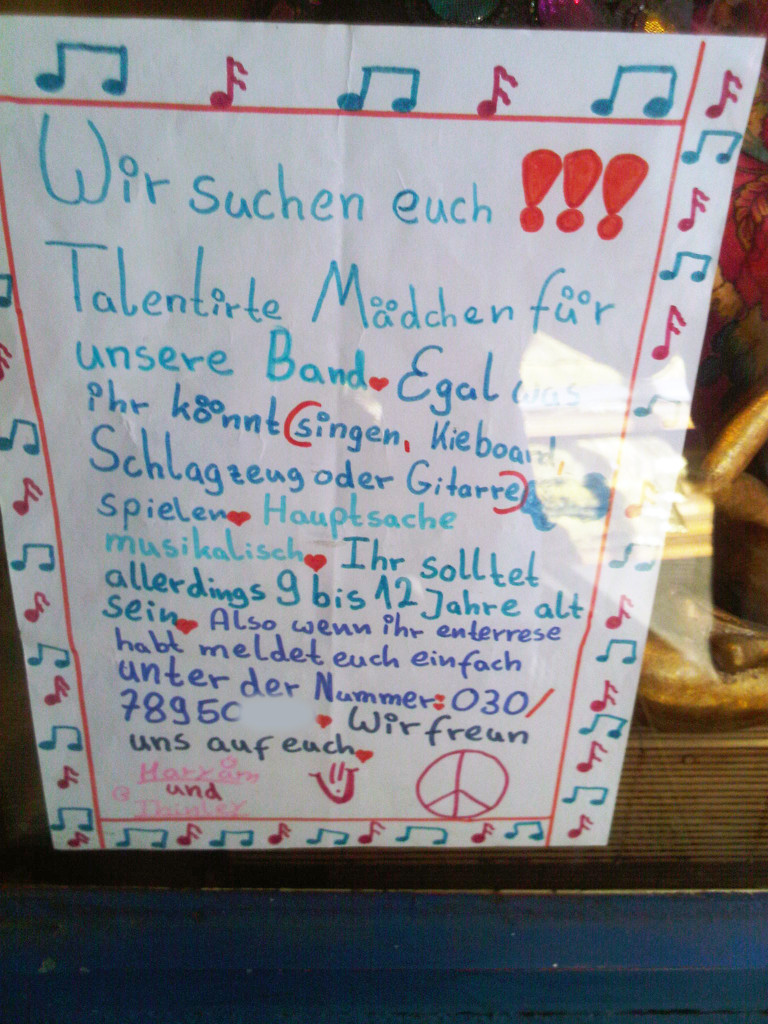 Wir suchen euch !!!
Talentirte Mädchen für
unsere Band. Egal was
ihr könnt (singen, Kieboard,
Schlagzeug oder Gitarre)
spielen. Hauptsache
musikalisch. Ihr solltet
allerdings 9 bis 12 Jahre alt
sein. Also wenn ihr enterrese
habt meldet euch einfach
unter der Nummer: 030/
78950 . Wir freun
uns auf euch.
Maryam
und
Thinley